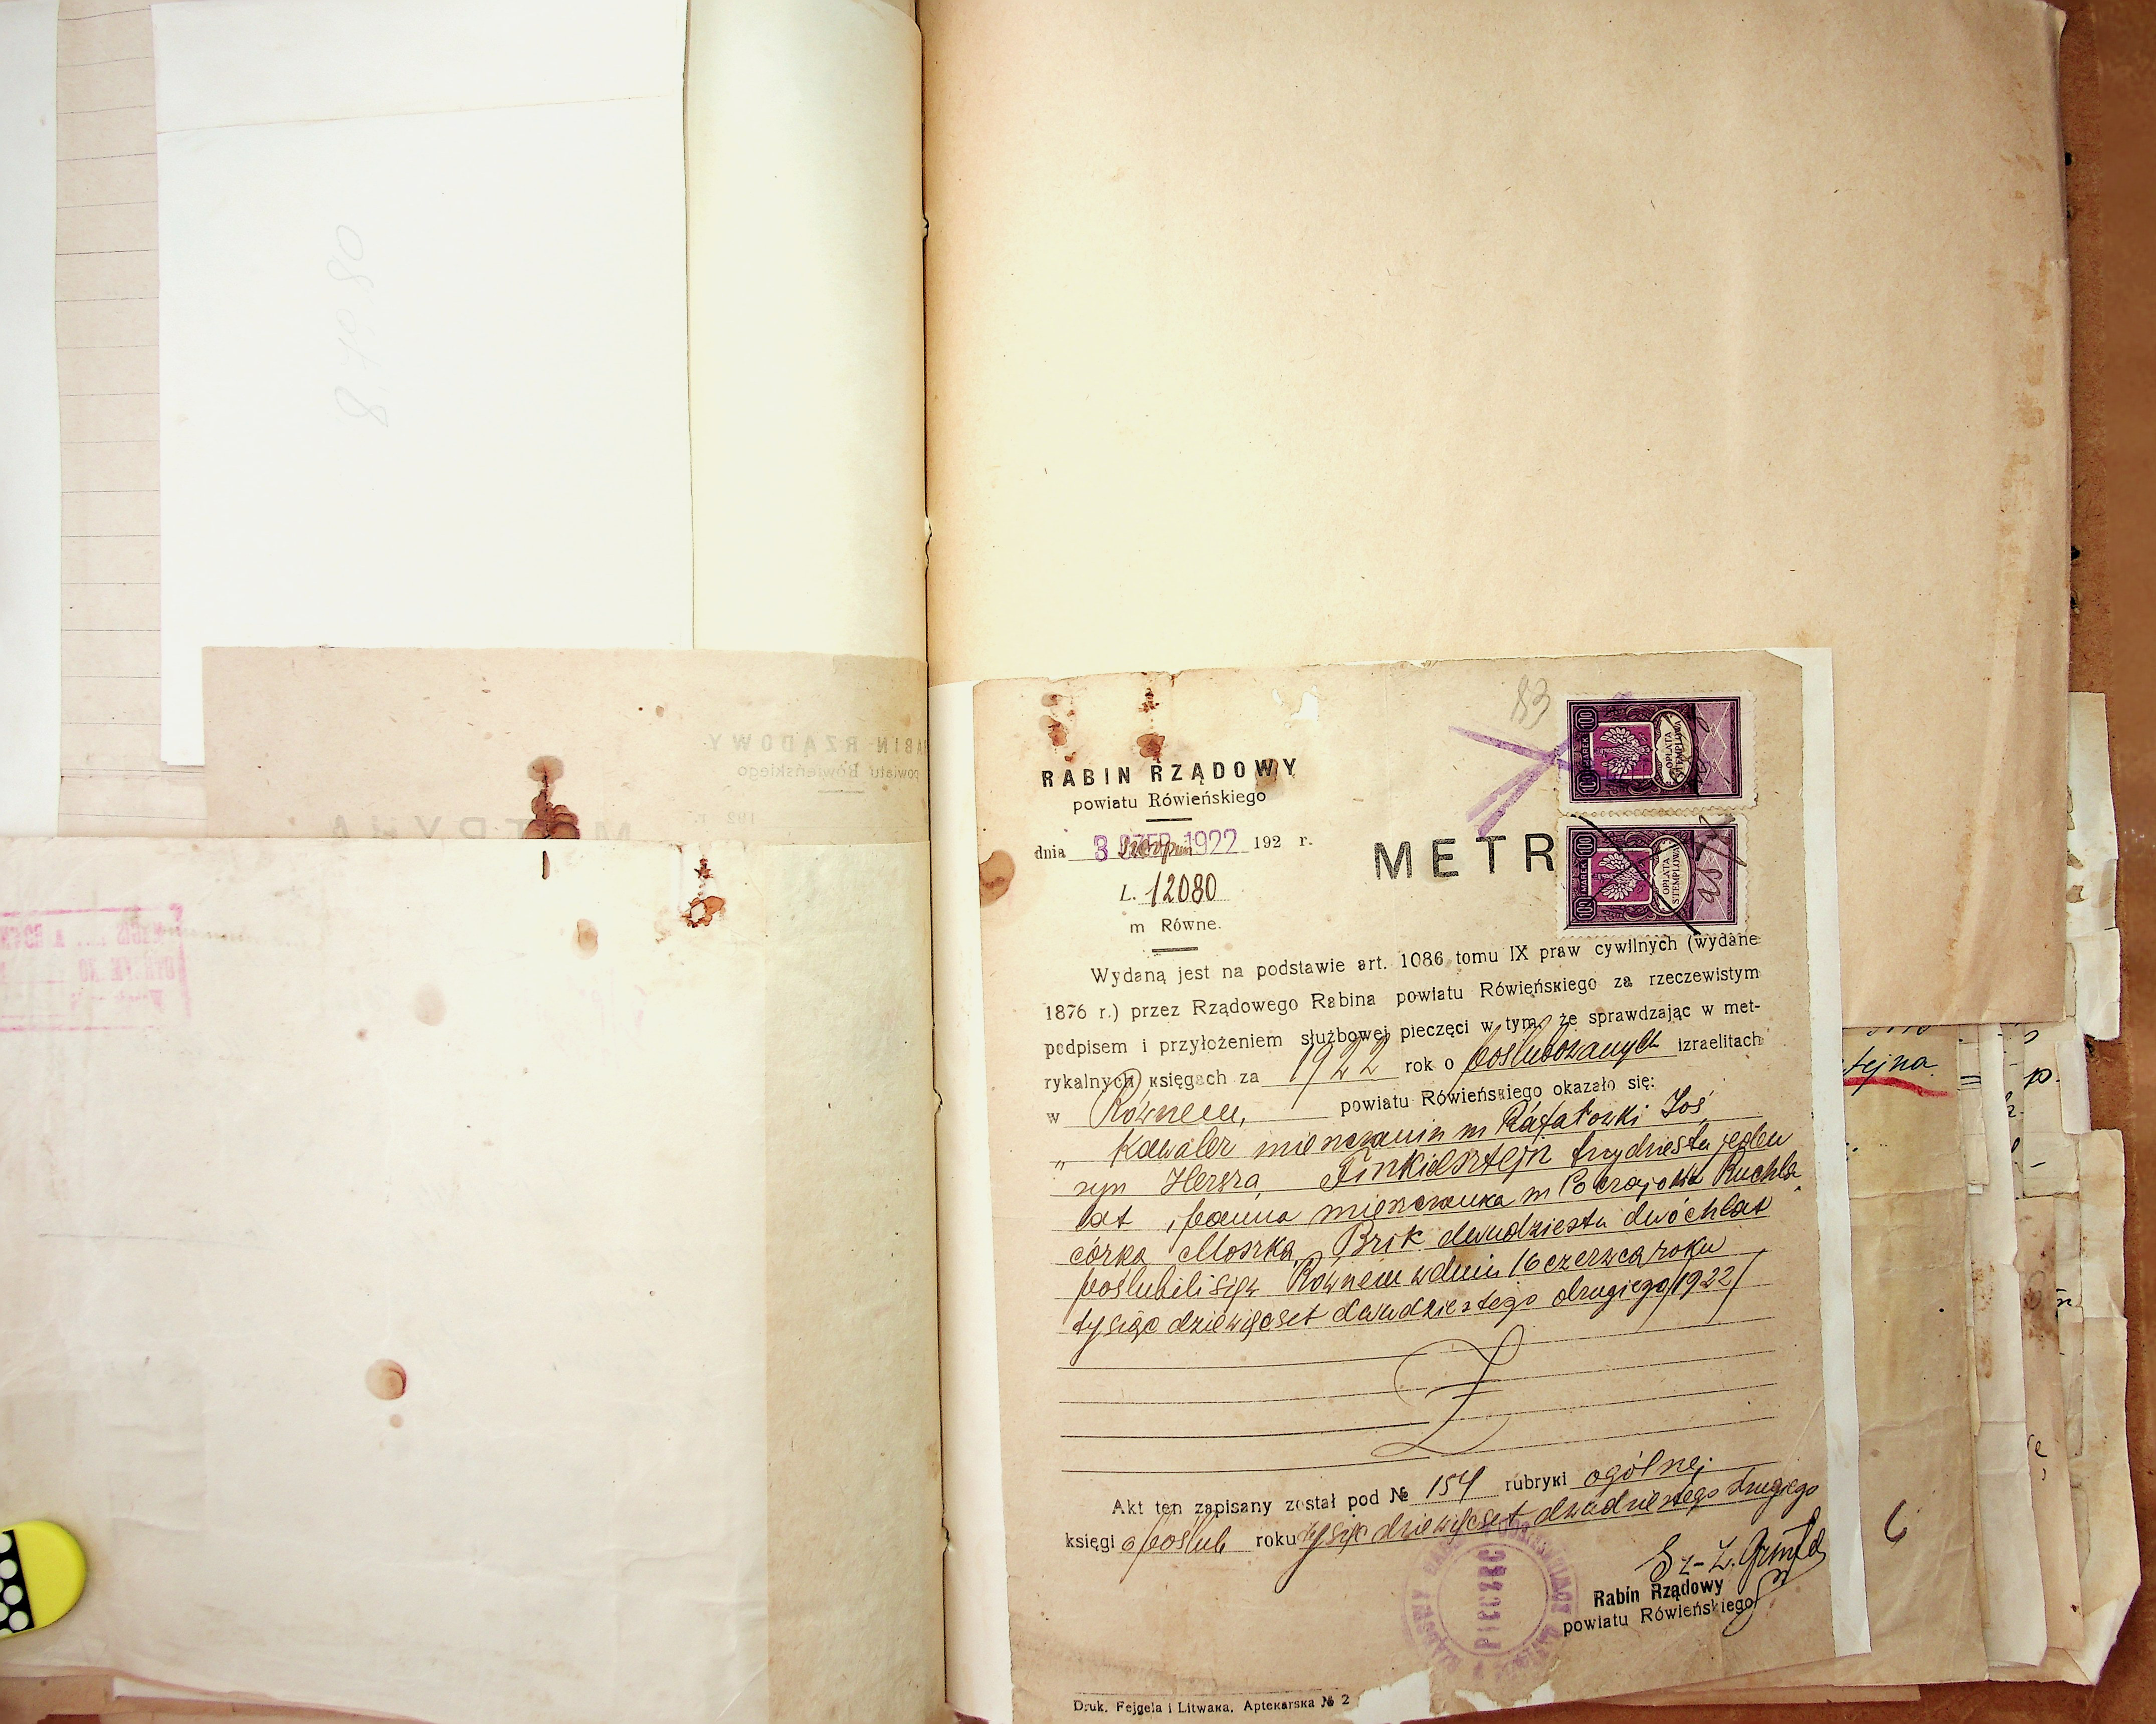 8.XI.80
RABIN RZĄDOWY
powiatu Rówieńskiego
83
dnia 3 SIER. 1922 192 r.
L. 12080
m Równe.
METR
100 MAREK 100
OPŁATA STEMPLOWA
100 MAREK 100
OPŁATA STEMPLOWA
Wydaną jest na podstawie art. 1086 tomu IX praw cywilnych (wydane
1876 r.) przez Rządowego Rabina powiatu Rówieńskiego za rzeczewistym
podpisem i przyłożeniem służbowej pieczęci w tym, że sprawdzając w met-
rykalnych księgach za 1922 rok o poślubozanych izraelitach
w Równem, powiatu Rówieńskiego okazało się:
" Kawaler mieszczanin m Rafałowki Ioś
syn Hersza Finkielsztejn trzydziestu jeden
lat, panna mieszczanka m Ruchla
córka Moszka Brik dwudziestu dwóch lat
poślubili się w Równem w dniu 16 czerwca roku
tysiąc dziewięćset dwudziestego drugiego/1922/
Akt ten zapisany został pod № 154 rubryki ogólnej
księgi o poślub roku tysiąc dziewięćset dwudziestego drugiego
Sz-L.
Rabin Rządowy
powiatu Rówieńskiego
PIECZĘĆ
Druk. Fejgela i Litwaka, Aptekarska № 2
6
tejna